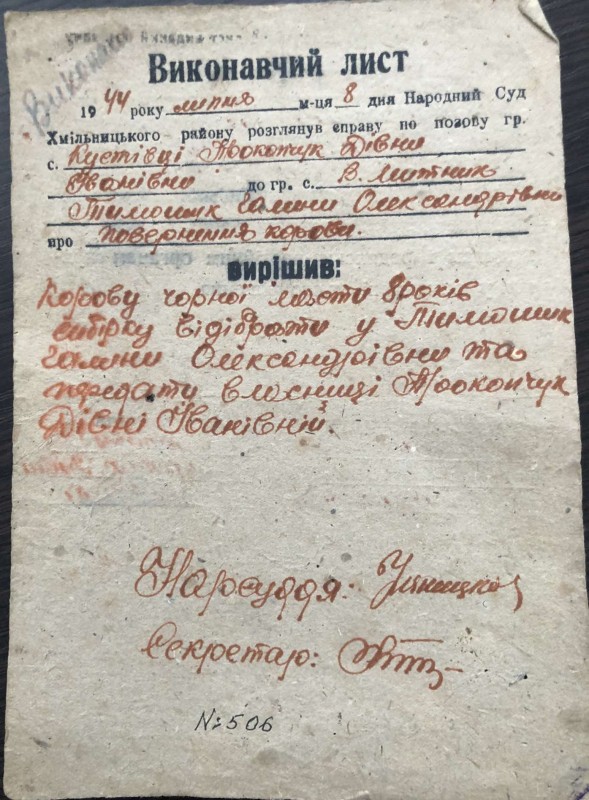 Виконано
Виконавчий лист
1944 року липня м-ця 8 дня Народний Суд
Хмільницького району розглянув справу по позову гр.
с. Кустівці Прокопчук Дівни
Іванівни до гр. с. В. Митник
Тимошик Галини Олександрівни
про повернення корови.
вирішив:
Корову чорної масти 8 років
відібрати у Тимошик
Галини Олександрівни та
передати власниці Прокопчук
Дівні Іванівній.
Нарсуддя:
Секретар:
№ 506